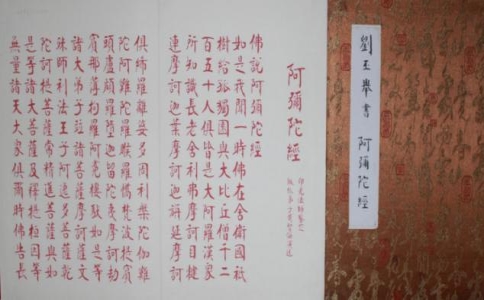 劉王舉書 阿彌陀經
阿彌陀經
佛說阿彌陀經
如是我聞一時佛在舍衛國祇
樹給孤獨園與大比丘僧千二
百五十人俱皆是大阿羅漢眾
所知識長老舍利弗摩訶目犍
連摩訶迦葉摩訶迦旃延摩訶
俱絺羅離婆多周利槃陀伽難
陀阿難陀羅睺羅憍梵波提賓
頭盧頗羅墮迦留陀夷摩訶劫
賓那薄拘羅阿㝹樓馱如是等
諸大弟子并諸菩薩摩訶薩文
殊師利法王子阿逸多菩薩乾
陀訶提菩薩常精進菩薩與如
是等諸大菩薩及釋提桓因等
無量諸天大眾俱爾時佛告長